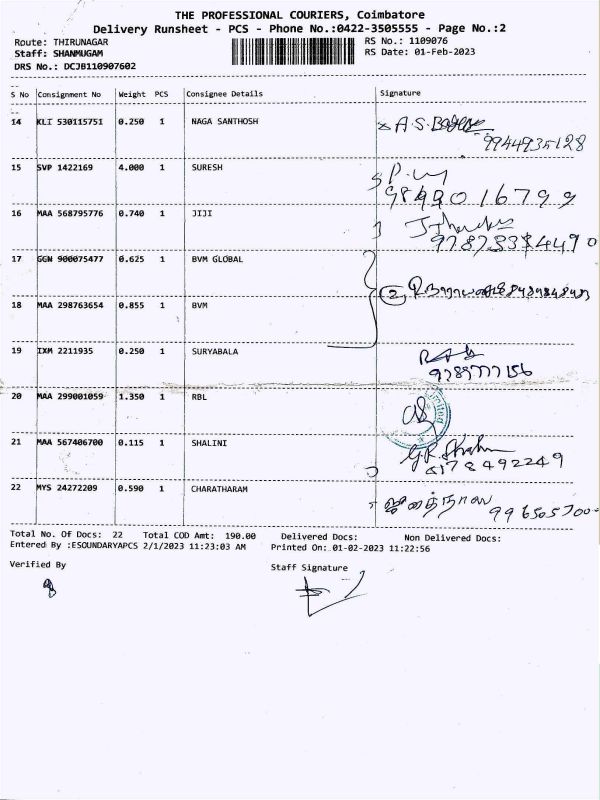 THE PROFESSIONAL COURIERS, Coimbatore
Delivery Runsheet - PCS - Phone No.:0422-3505555 - Page No.:2
Route: THIRUNAGAR
Staff: SHANMUGAM
DRS No.: DCJB110907602
RS No.: 1109076
RS Date: 01-Feb-2023
S No Consignment No Weight PCS Consignee Details Signature
14 KLI 530115751 0.250 1 NAGA SANTHOSH A.S.
9944935128
15 SVP 1422169 4.000 1 SURESH
16 MAA 568795776 0.740 1 JIJI
17 GGN 900075477 0.625 1 BVM GLOBAL
18 MAA 298763654 0.855 1 BVM 2
19 IXM 2211935 0.250 1 SURYABALA
9789777156
20 MAA 299001059 1.350 1 RBL
21 MAA 567406700 0.115 1 SHALINI
8178492249
22 MYS 24272209 0.590 1 CHARATHARAM
Total No. Of Docs: 22 Total COD Amt: 190.00 Delivered Docs: Non Delivered Docs:
Entered By :ESOUNDARYAPCS 2/1/2023 11:23:03 AM Printed On: 01-02-2023 11:22:56
Verified By
Staff Signature